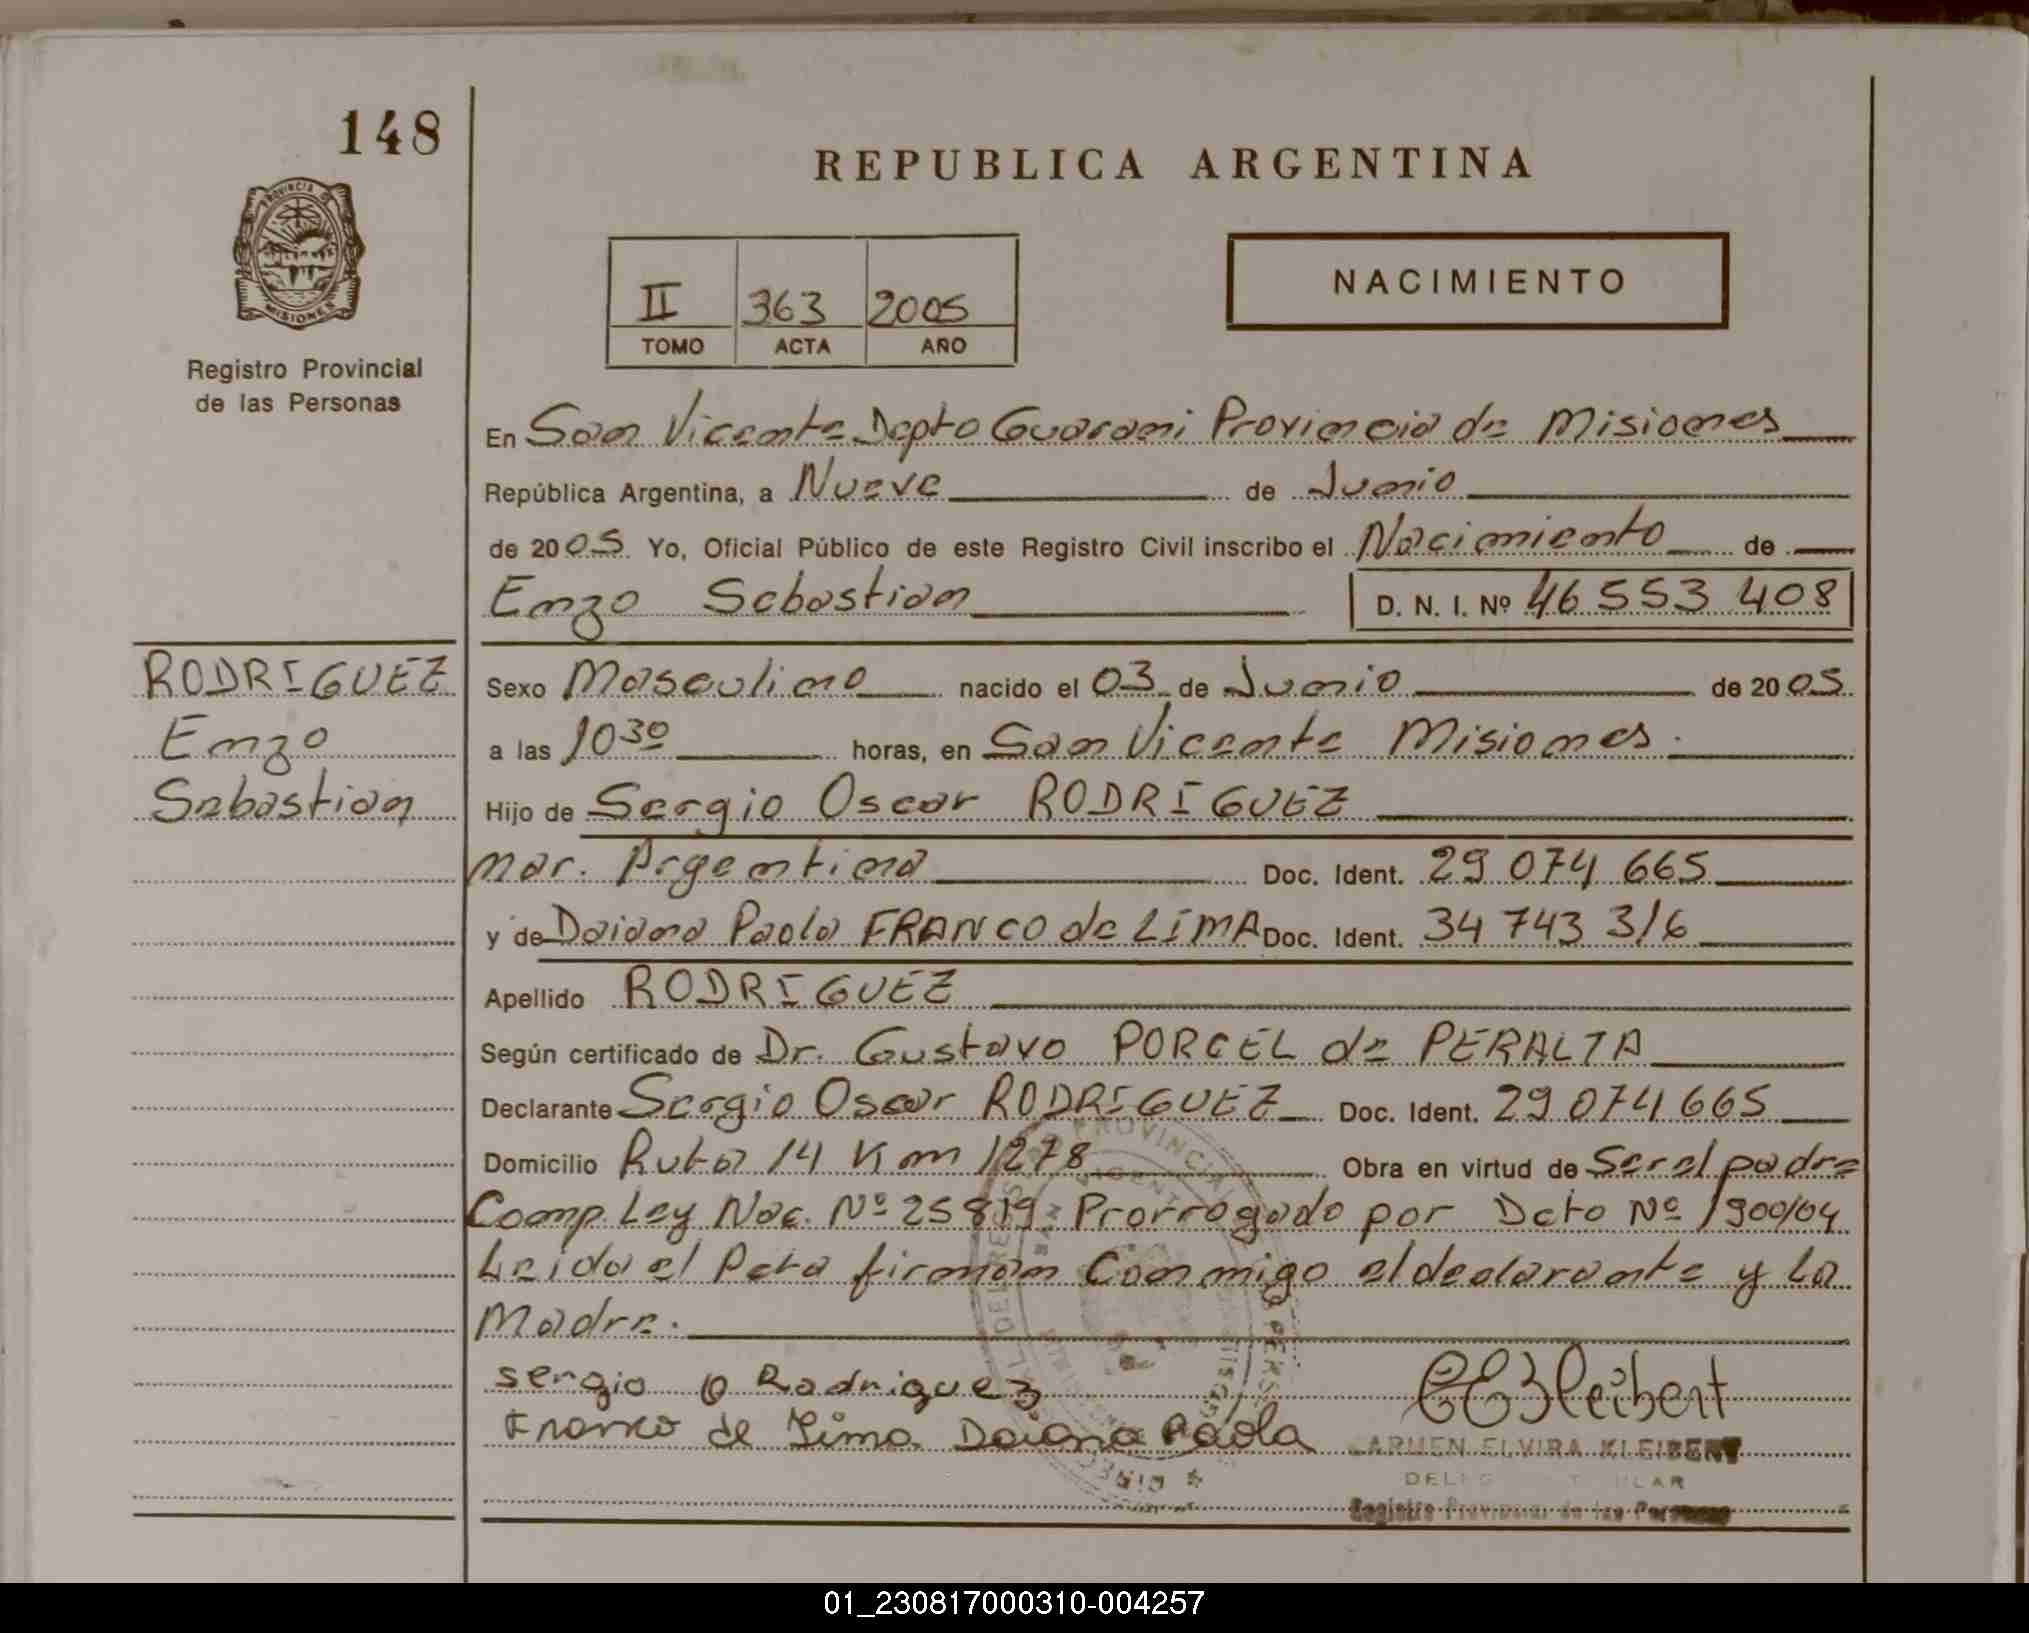 148
PROVINCIA DE
MISIONES
Registro Provincial
de las Personas
REPUBLICA ARGENTINA
II 363 2005
TOMO ACTA AÑO
NACIMIENTO
En San Vicente Depto Guarani Provincia de Misiones
República Argentina, a Nueve de Junio
de 2005 Yo, Oficial Público de este Registro Civil inscribo el Nacimiento de
Enzo Sebastian D. N. I. Nº 46 553 408
RODRIGUEZ
Enzo
Sebastian
Sexo Masculino nacido el 03 de Junio de 2005
a las 10 30 horas, en San Vicente Misiones.
Hijo de Sergio Oscar RODRIGUEZ
Nac. Argentina Doc. Ident. 29 074 665
y de Daiana Paola FRANCO de LIMA Doc. Ident. 34 743 316
Apellido RODRIGUEZ
Según certificado de Dr. Gustavo PORCEL de PERALTA
Declarante Sergio Oscar RODRIGUEZ Doc. Ident. 29 074 665
Domicilio Ruta 14 Km 1278 Obra en virtud de Ser el padre
Comp. Ley Nac. Nº 25819 Prorrogado por Dcto Nº 1900/04
Leida el Acta firman Conmigo el declarante y la
Madre.
sergio O Rodriguez
Franco de Lima Daiana Paola
CARMEN ELVIRA KLEIBERT
Registro Provincial de las Personas
01_230817000310-004257